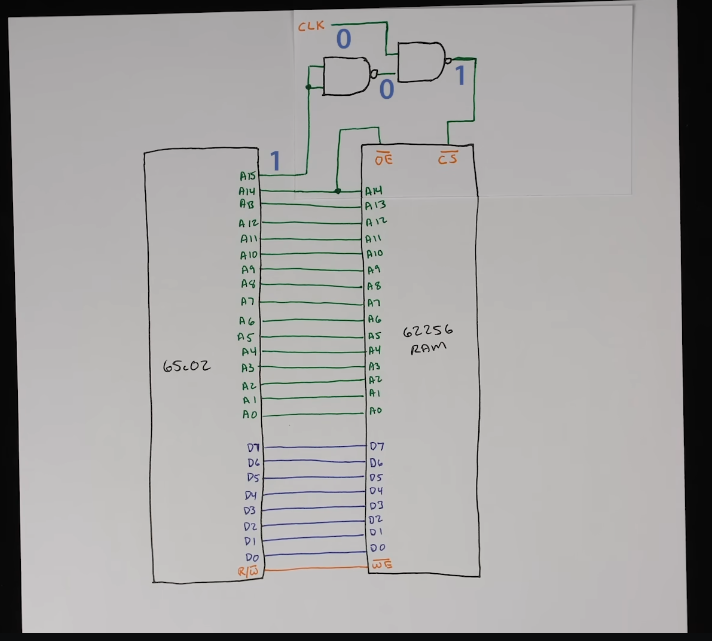 CLK
0
0
1
1
OE
CS
A15
A14
A13
A12
A11
A10
A9
A8
A7
A6
A5
A4
A3
A2
A1
A0
D7
D6
D5
D4
D3
D2
D1
D0
R/W
65C02
A14
A13
A12
A11
A10
A9
A8
A7
A6
A5
A4
A3
A2
A1
A0
D7
D6
D5
D4
D3
D2
D1
D0
WE
62256
RAM